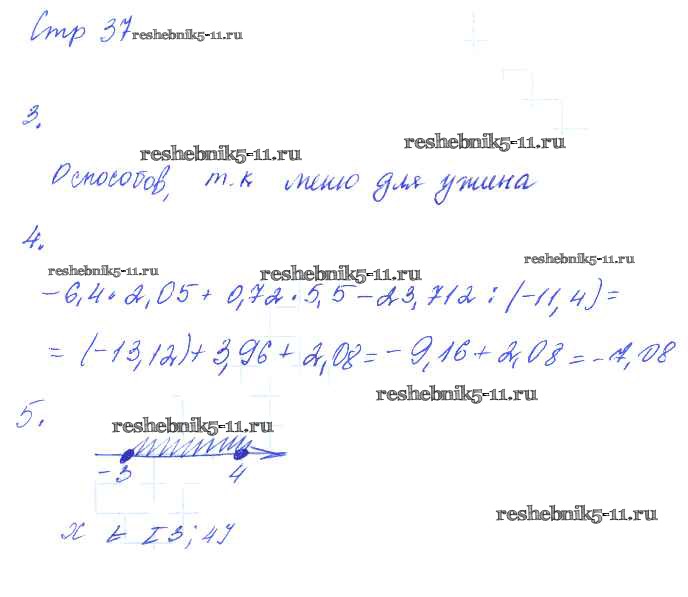 Стр 37 reshebnik5-11.ru
3.
reshebnik5-11.ru reshebnik5-11.ru
0 способов, т.к меню для ужина
4.
reshebnik5-11.ru reshebnik5-11.ru reshebnik5-11.ru
-6,4·2,05+0,72·5,5-23,712:(-11,4)=
=(-13,12)+3,96+2,08=-9,16+2,08=-7,08
reshebnik5-11.ru
5.
reshebnik5-11.ru
-3 4
reshebnik5-11.ru
x 3; 4